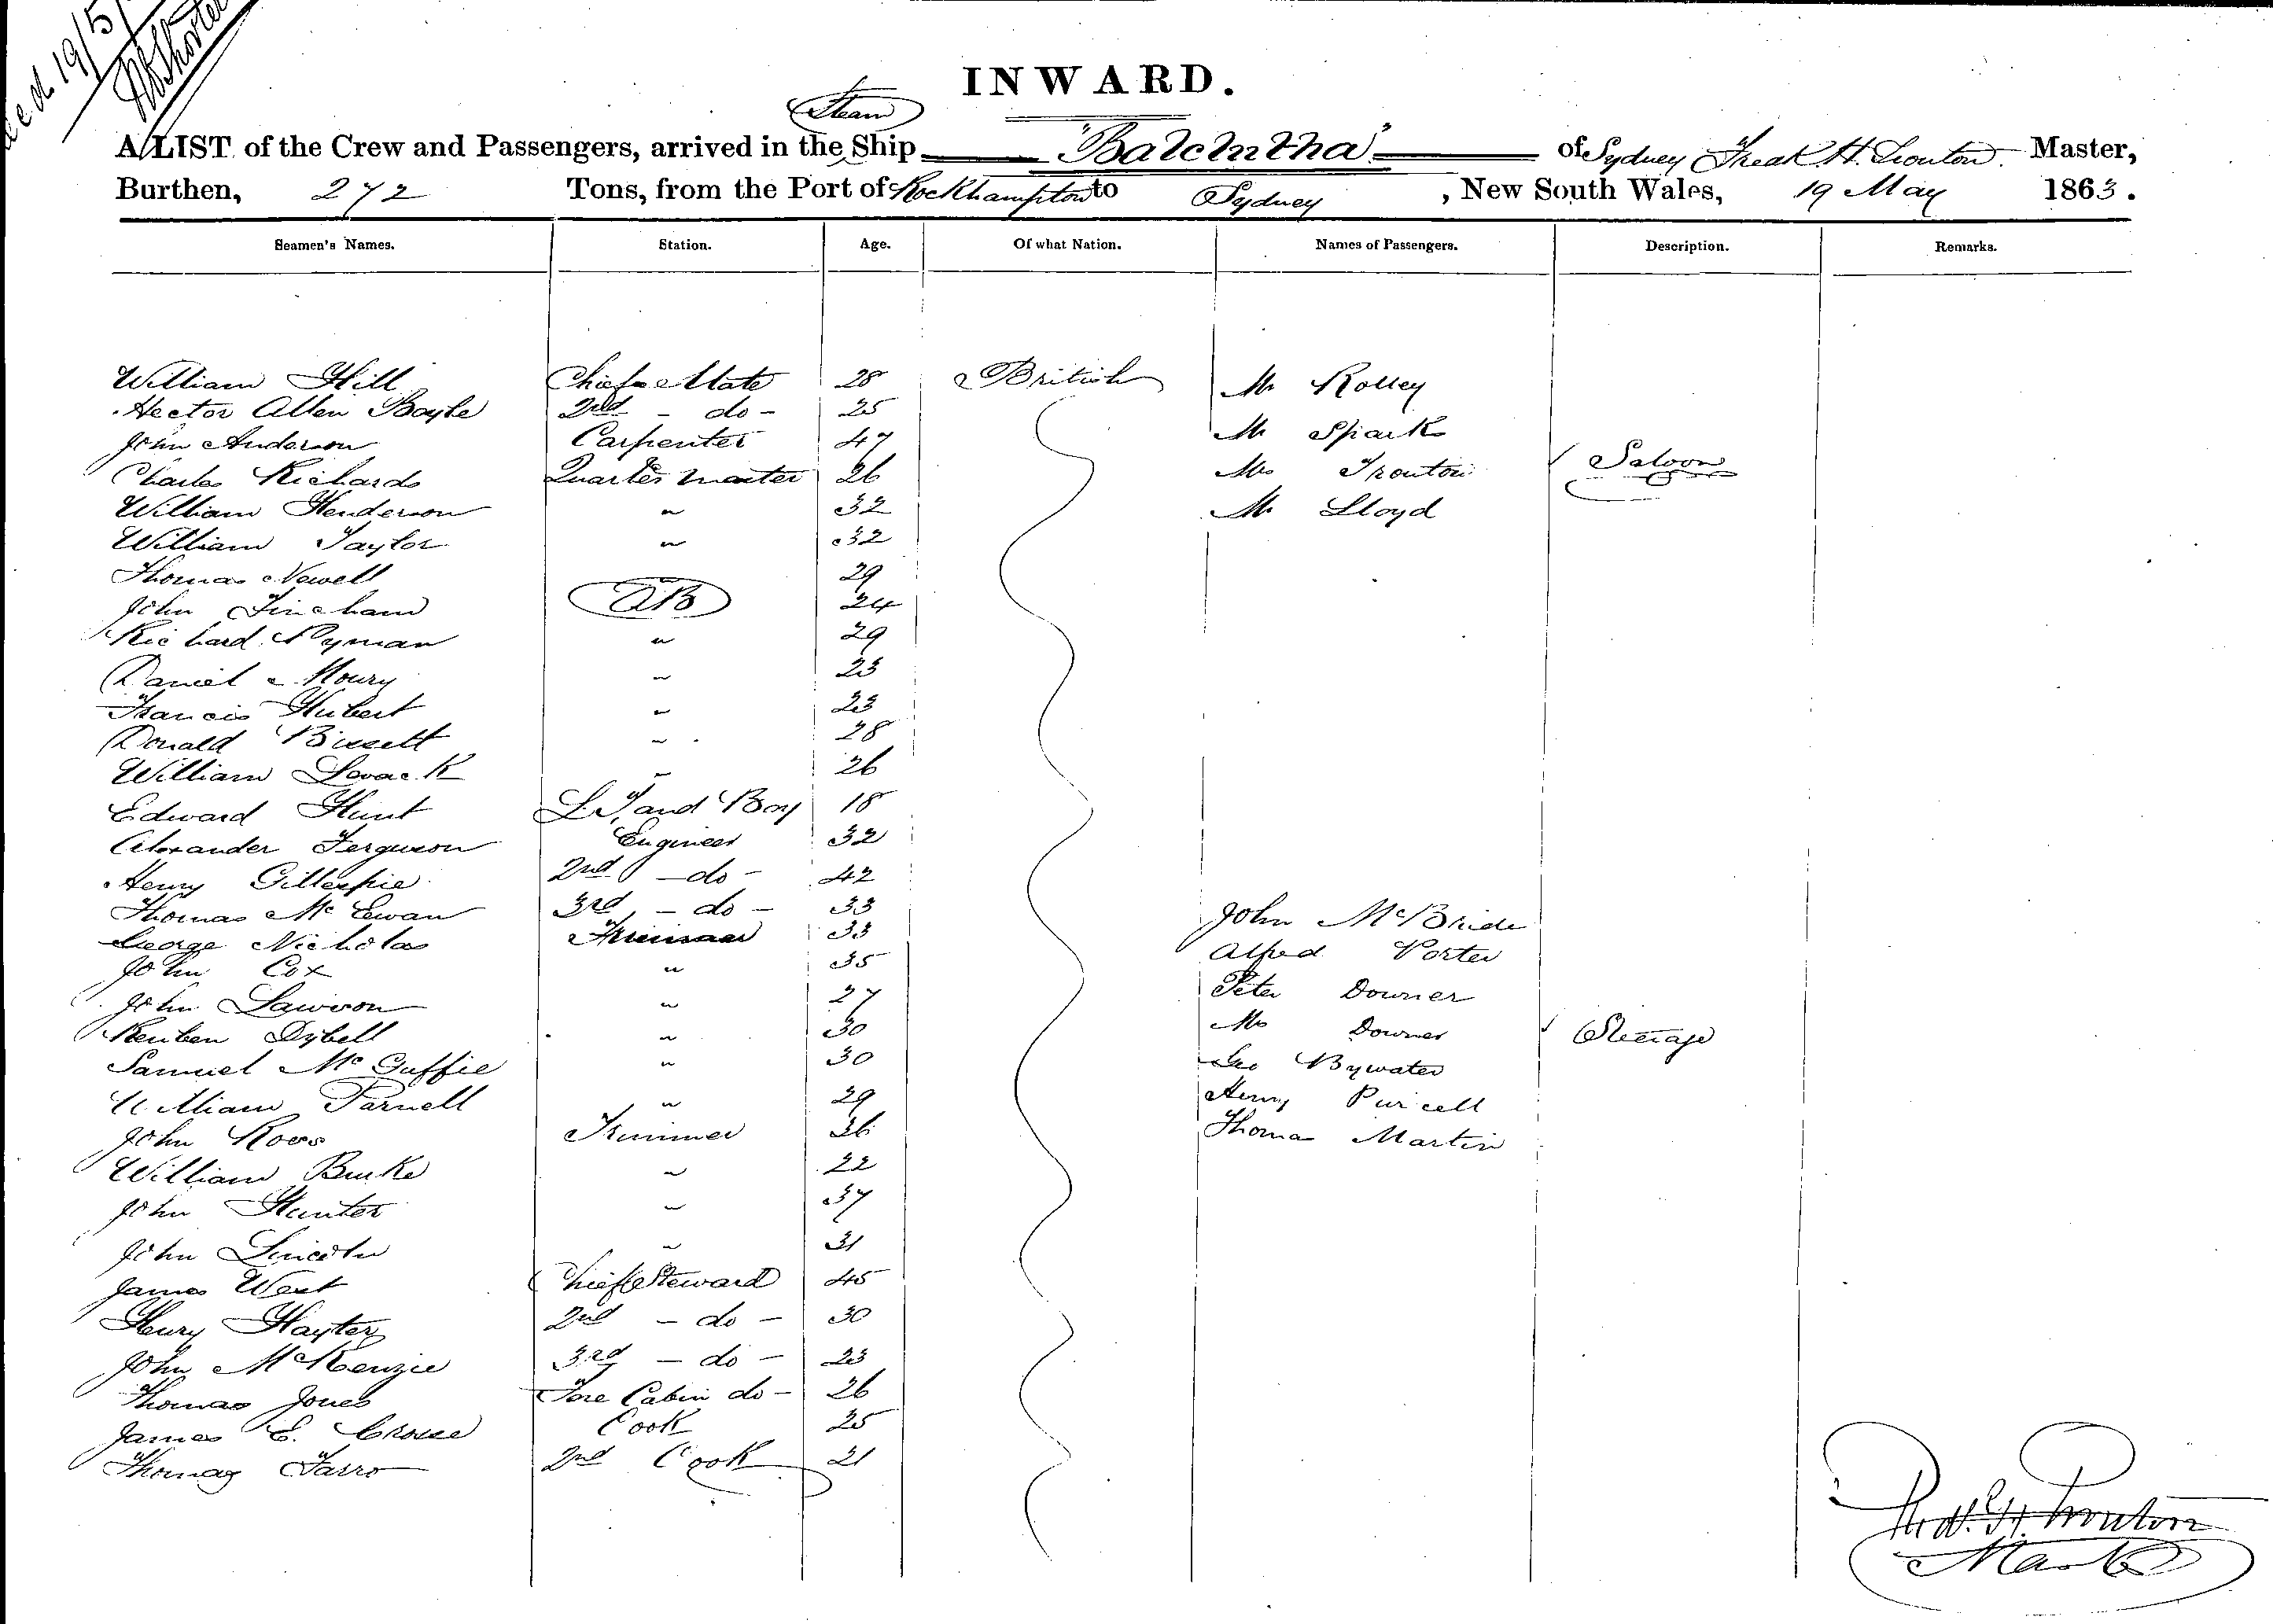 INWARD.
Steam
A LIST of the Crew and Passengers, arrived in the Ship "Balclutha" of Sydney H. Trouton Master,
Burthen, 272 Tons, from the Port of Rockhampton to Sydney, New South Wales, 19 May 1863.
Seamen's Names. Station. Age. Of what Nation. Names of Passengers. Description. Remarks.
William Hill Chief Mate 28 British Mr Rolley
Hector Allen Boyle 2nd - do - 25
John Anderson Carpenter 47 Mr Spark
Charles Richards Quarter Master 26 Mrs Trouton Saloon
William Henderson " 32 Mr Lloyd
William Taylor " 32
Thomas Newell 29
John Fincham AB 24
Richard Pyman " 29
Daniel Moury " 25
Francis Hubert " 23
Donald Bissett " 28
William Levack " 26
Edward Hunt and Boy 18
Alexander Ferguson Engineer 32
Henry Gillespie 2nd - do - 42
Thomas McEwan 3rd - do - 33 John McBride
George Nicholas Fireman 33
John Cox " 35 Alfred Porter
John Lawson " 27 Peter Downer
Reuben Dybell " 30 Mrs Downer Steerage
Samuel McGuffie " 30 Geo Bywater
William Parnell " 29 Henry Purcell
John Ross Trimmer 26 Thomas Martin
William Burke " 22
John Hunter " 37
John Lincoln " 31
James West Chief Steward 45
Henry Hayter 2nd - do - 30
John McKenzie 3rd - do - 23
Thomas Jones Fore Cabin do - 26
James E. Crosse Cook 25
Thomas Farro 2nd Cook 21
H. Trouton
Master